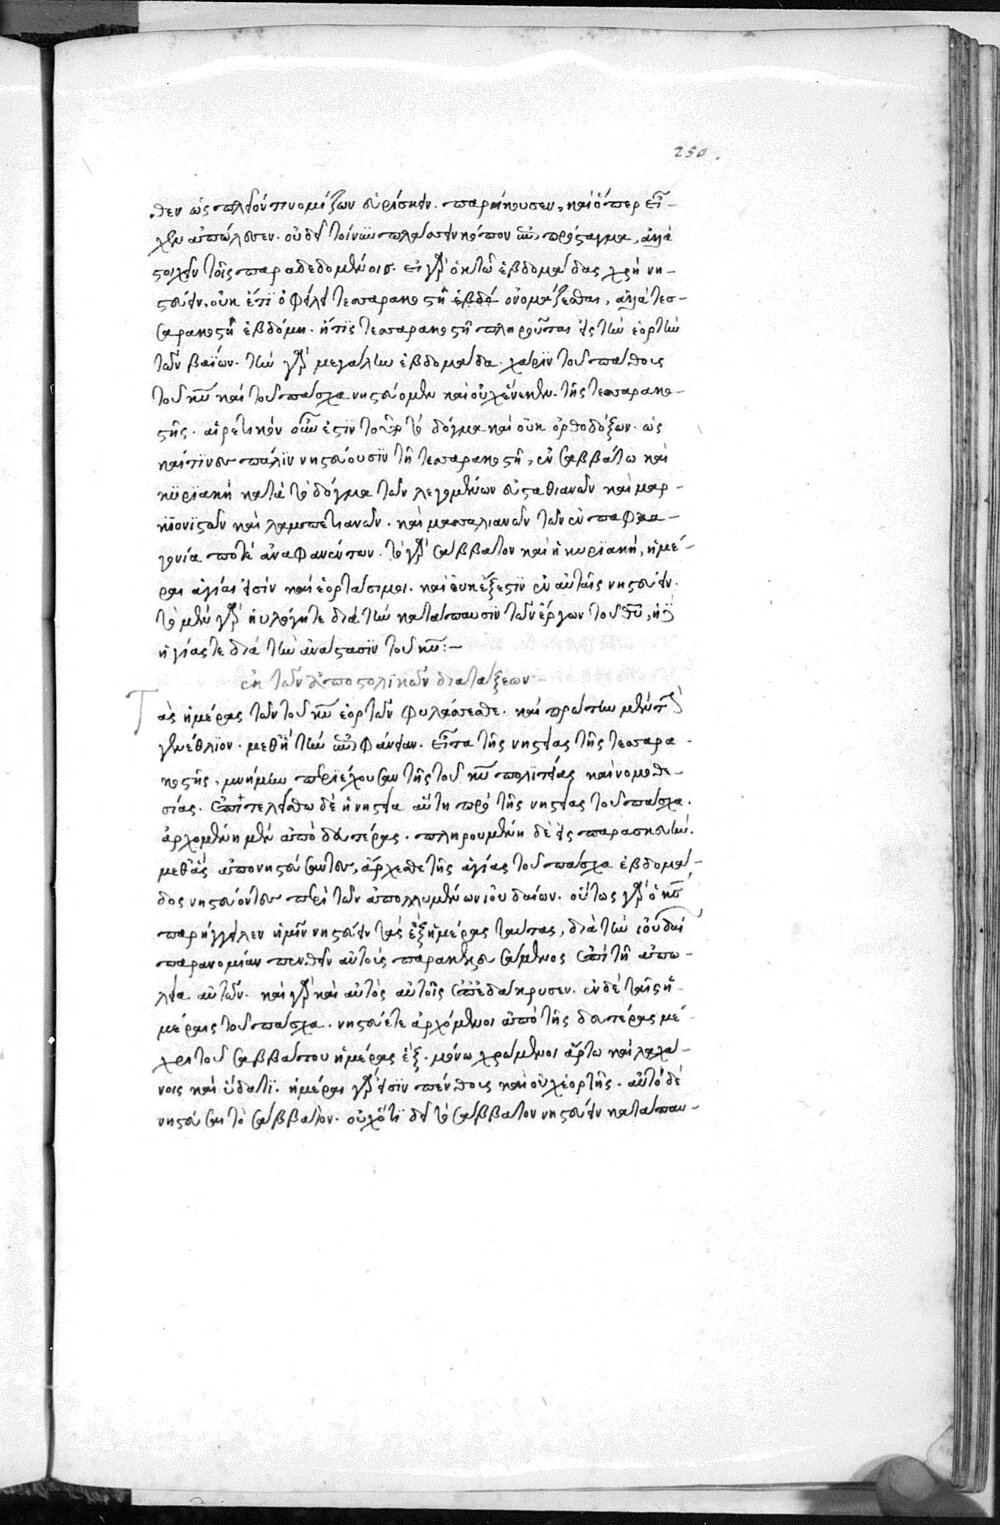 250.
θεν ὡς πλέον τι νομίζων εὑρίσκειν. παρήκουσεν, καὶ ὅπερ εἶ-
χεν ἀπώλεσεν. οὐ δεῖ τοίνυν πλάσειν κόπον καὶ πρόσταγμα, ἀλλὰ
στοιχεῖν τοῖς παραδεδομένοις. εἰ γὰρ ὀκτὼ ἑβδομάδας χρὴ νη-
στεύειν, οὐκ ἔτι ὀφείλει τεσσαρακοστὴ ὀνομάζεσθαι, ἀλλὰ τεσ-
σαρακοστὴ ἑβδόμη. ἥτις τεσσαρακοστὴ πληροῦται εἰς τὴν ἑορτὴν
τῶν βαΐων. τὴν γὰρ μεγάλην ἑβδομάδα χάριν τοῦ πάθους
τοῦ κυ καὶ τοῦ πάσχα νηστεύομεν καὶ οὐχ ἕνεκεν τῆς τεσσαρακο-
στῆς. αἱρετικὸν οὖν ἐστιν τὸ δόγμα καὶ οὐκ ὀρθοδόξων. ὡς
καί τινες πάλιν νηστεύουσιν τῇ τεσσαρακοστῇ, ἐν σαββάτω καὶ
κυριακῇ κατὰ τὸ δόγμα τῶν λεγομένων εὐσταθιανῶν καὶ μαρ-
κιονιστῶν καὶ λαμπετιανῶν. καὶ μασσαλιανῶν τῶν ἐν παφλα-
γονία ποτὲ ἀναφανέντων. τὸ γὰρ σάββατον καὶ ἡ κυριακὴ, ἡμέ-
ραι ἁγίαι εἰσὶν καὶ ἑορτάσιμοι. καὶ οὐκ ἔξεστιν ἐν αὐταῖς νηστεύειν.
τὸ μὲν γὰρ ηὐλόγητε διὰ τὴν κατάπαυσιν τῶν ἔργων τοῦ θυ, ἡ δὲ
ἡγίαστε διὰ τὴν ἀνάστασιν τοῦ κυ:-
ἐκ τῶν ἀποστολικῶν διατάξεων:-
Τὰς ἡμέρας τῶν τοῦ κυ ἑορτῶν φυλάσσεσθε. καὶ πρώτην μὲν τὸ
γενέθλιον. μεθ' ἣν τὴν ἐπιφάνειαν. εἶτα τῆς νηστείας τῆς τεσσαρα-
κοστῆς. μνήμην περιέχουσαν τῆς τοῦ κυ πολιτείας καὶ νομοθε-
σίας. ἐπιτελείσθω δὲ ἡ νηστεία αὕτη πρὸ τῆς νηστείας τοῦ πάσχα.
ἀρχομένη μὲν ἀπὸ δευτέρας. πληρουμένη δὲ εἰς παρασκευήν.
μεθ' ἃς ἀπονηστεύσαντες, ἄρχεσθε τῆς ἁγίας τοῦ πάσχα ἑβδομά-
δος νηστεύοντες περὶ τῶν ἀπολλυμένων ἰουδαίων. οὕτως γὰρ ὁ κς
παρήγγειλεν ἡμῖν νηστεύειν τὰς ἓξ ἡμέρας ταύτας, διὰ τὴν ἰουδαί
παρανομίαν πενθεῖν αὐτοὺς παρακελευσάμενος ἐπὶ τῇ ἀπω-
λεία αὐτῶν. καὶ γὰρ καὶ αὐτὸς αὐτοῖς ἐπεδάκρυσεν. ἐν δὲ ταῖς ἡ-
μέραις τοῦ πάσχα. νηστεύετε ἀρχόμενοι ἀπὸ τῆς δευτέρας μέ-
χρι τοῦ σαββάτου ἡμέρας ἓξ. μόνω χρώμενοι ἄρτω καὶ λαχά-
νοις καὶ ὕδατι. ἡμέραι γὰρ εἰσὶν πένθους καὶ οὐχ ἑορτῆς. αὐτὸ δὲ
νηστεύσαι τὸ σάββατον. οὐχ ὅτι δεῖ τὸ σάββατον νηστεύειν κατάπαυ-